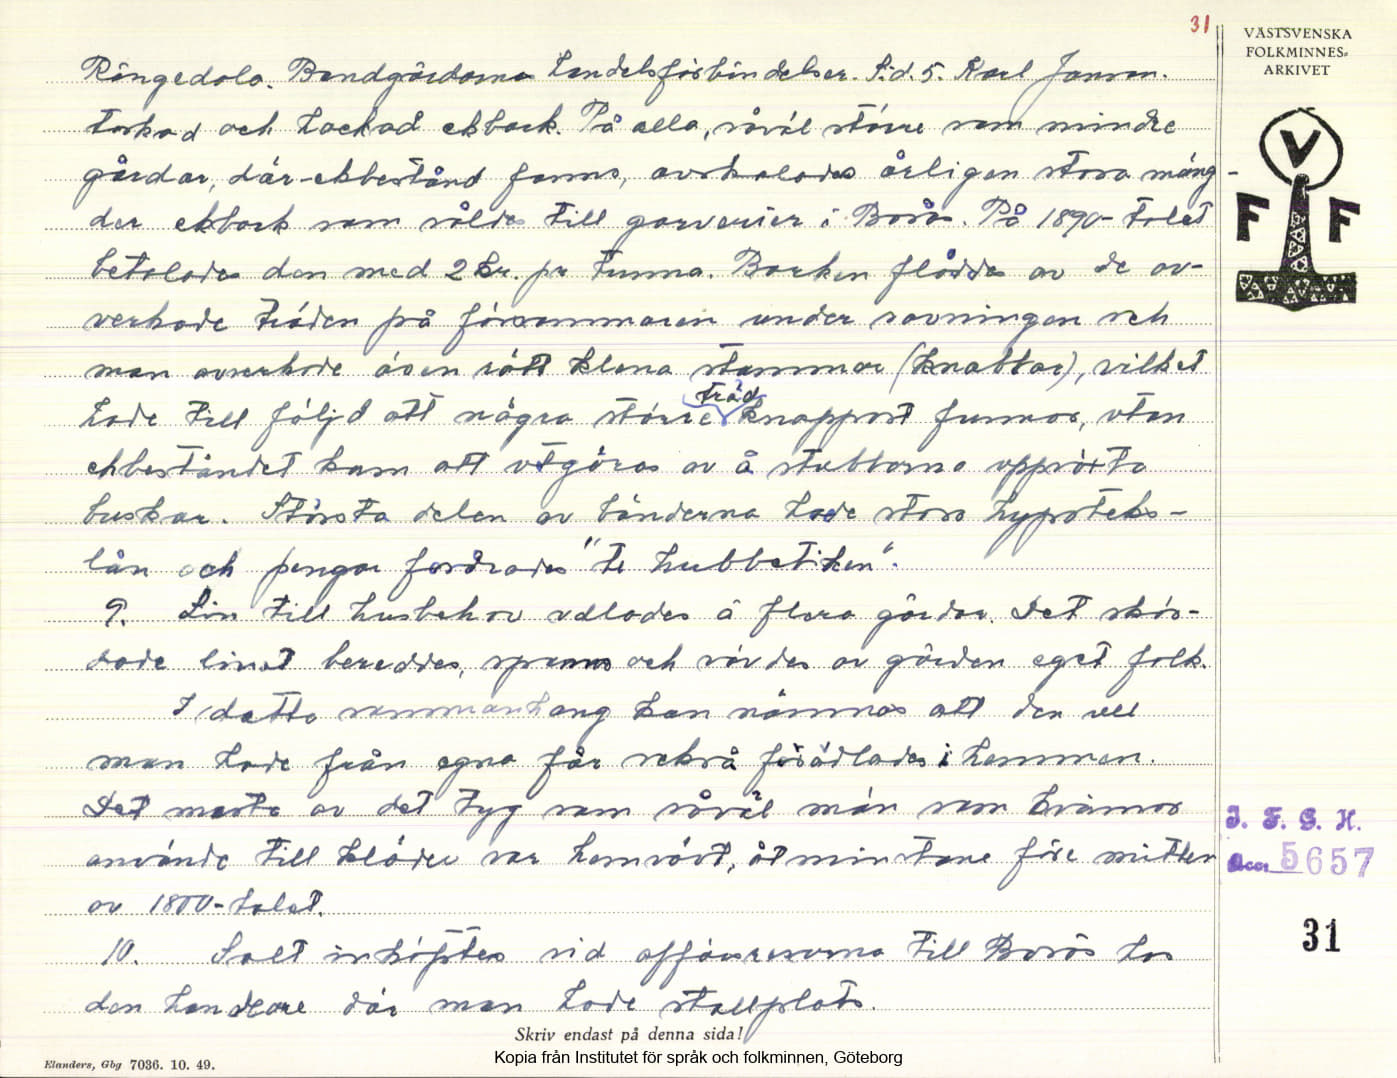 31
VÄSTSVENSKA
FOLKMINNES-
ARKIVET
V
F F
Rångedala. Bondgårdarna handelsförbindelser. S:d. 5. Karl Jonson.
torkad och hackad ekbark. På alla, såväl större som mindre
gårdar, där ekbestånd fanns, avskalades årligen stora mäng-
der ekbark som såldes till garverier i Borås. På 1890-talet
betalades den med 2 kr. pr tunna. Barken flåddes av de av-
verkade träden på försommaren under savningen och
man avverkade även rätt klena stammar (knabbar), vilket
hade till följd att några större träd knappast funnos, utan
ekbeståndet kom att utgöras av å stubbarna uppväxta
buskar. Största delen av bönderna hade stora hypoteks-
lån och pengar fordrades "te hubbetiken".
9. Lin till husbehov odlades å flera gårdar. Det skör-
dade linet bereddes, spanns och vävdes av gården eget folk.
I detta sammanhang kan nämnas att den ull
man hade från egna får också förädlades i hemmen.
Det mesta av det tyg som såväl män som kvinnor
använde till kläder var hemvävt, åtminstone före mitten
av 1800-talet.
10. Salt inköptes vid affärsresorna till Borås hos
den handlare där man hade stallplats.
J. F. G. H.
Acc. 5657
31
Skriv endast på denna sida!
Elanders, Gbg 7036. 10. 49.
Kopia från Institutet för språk och folkminnen, Göteborg